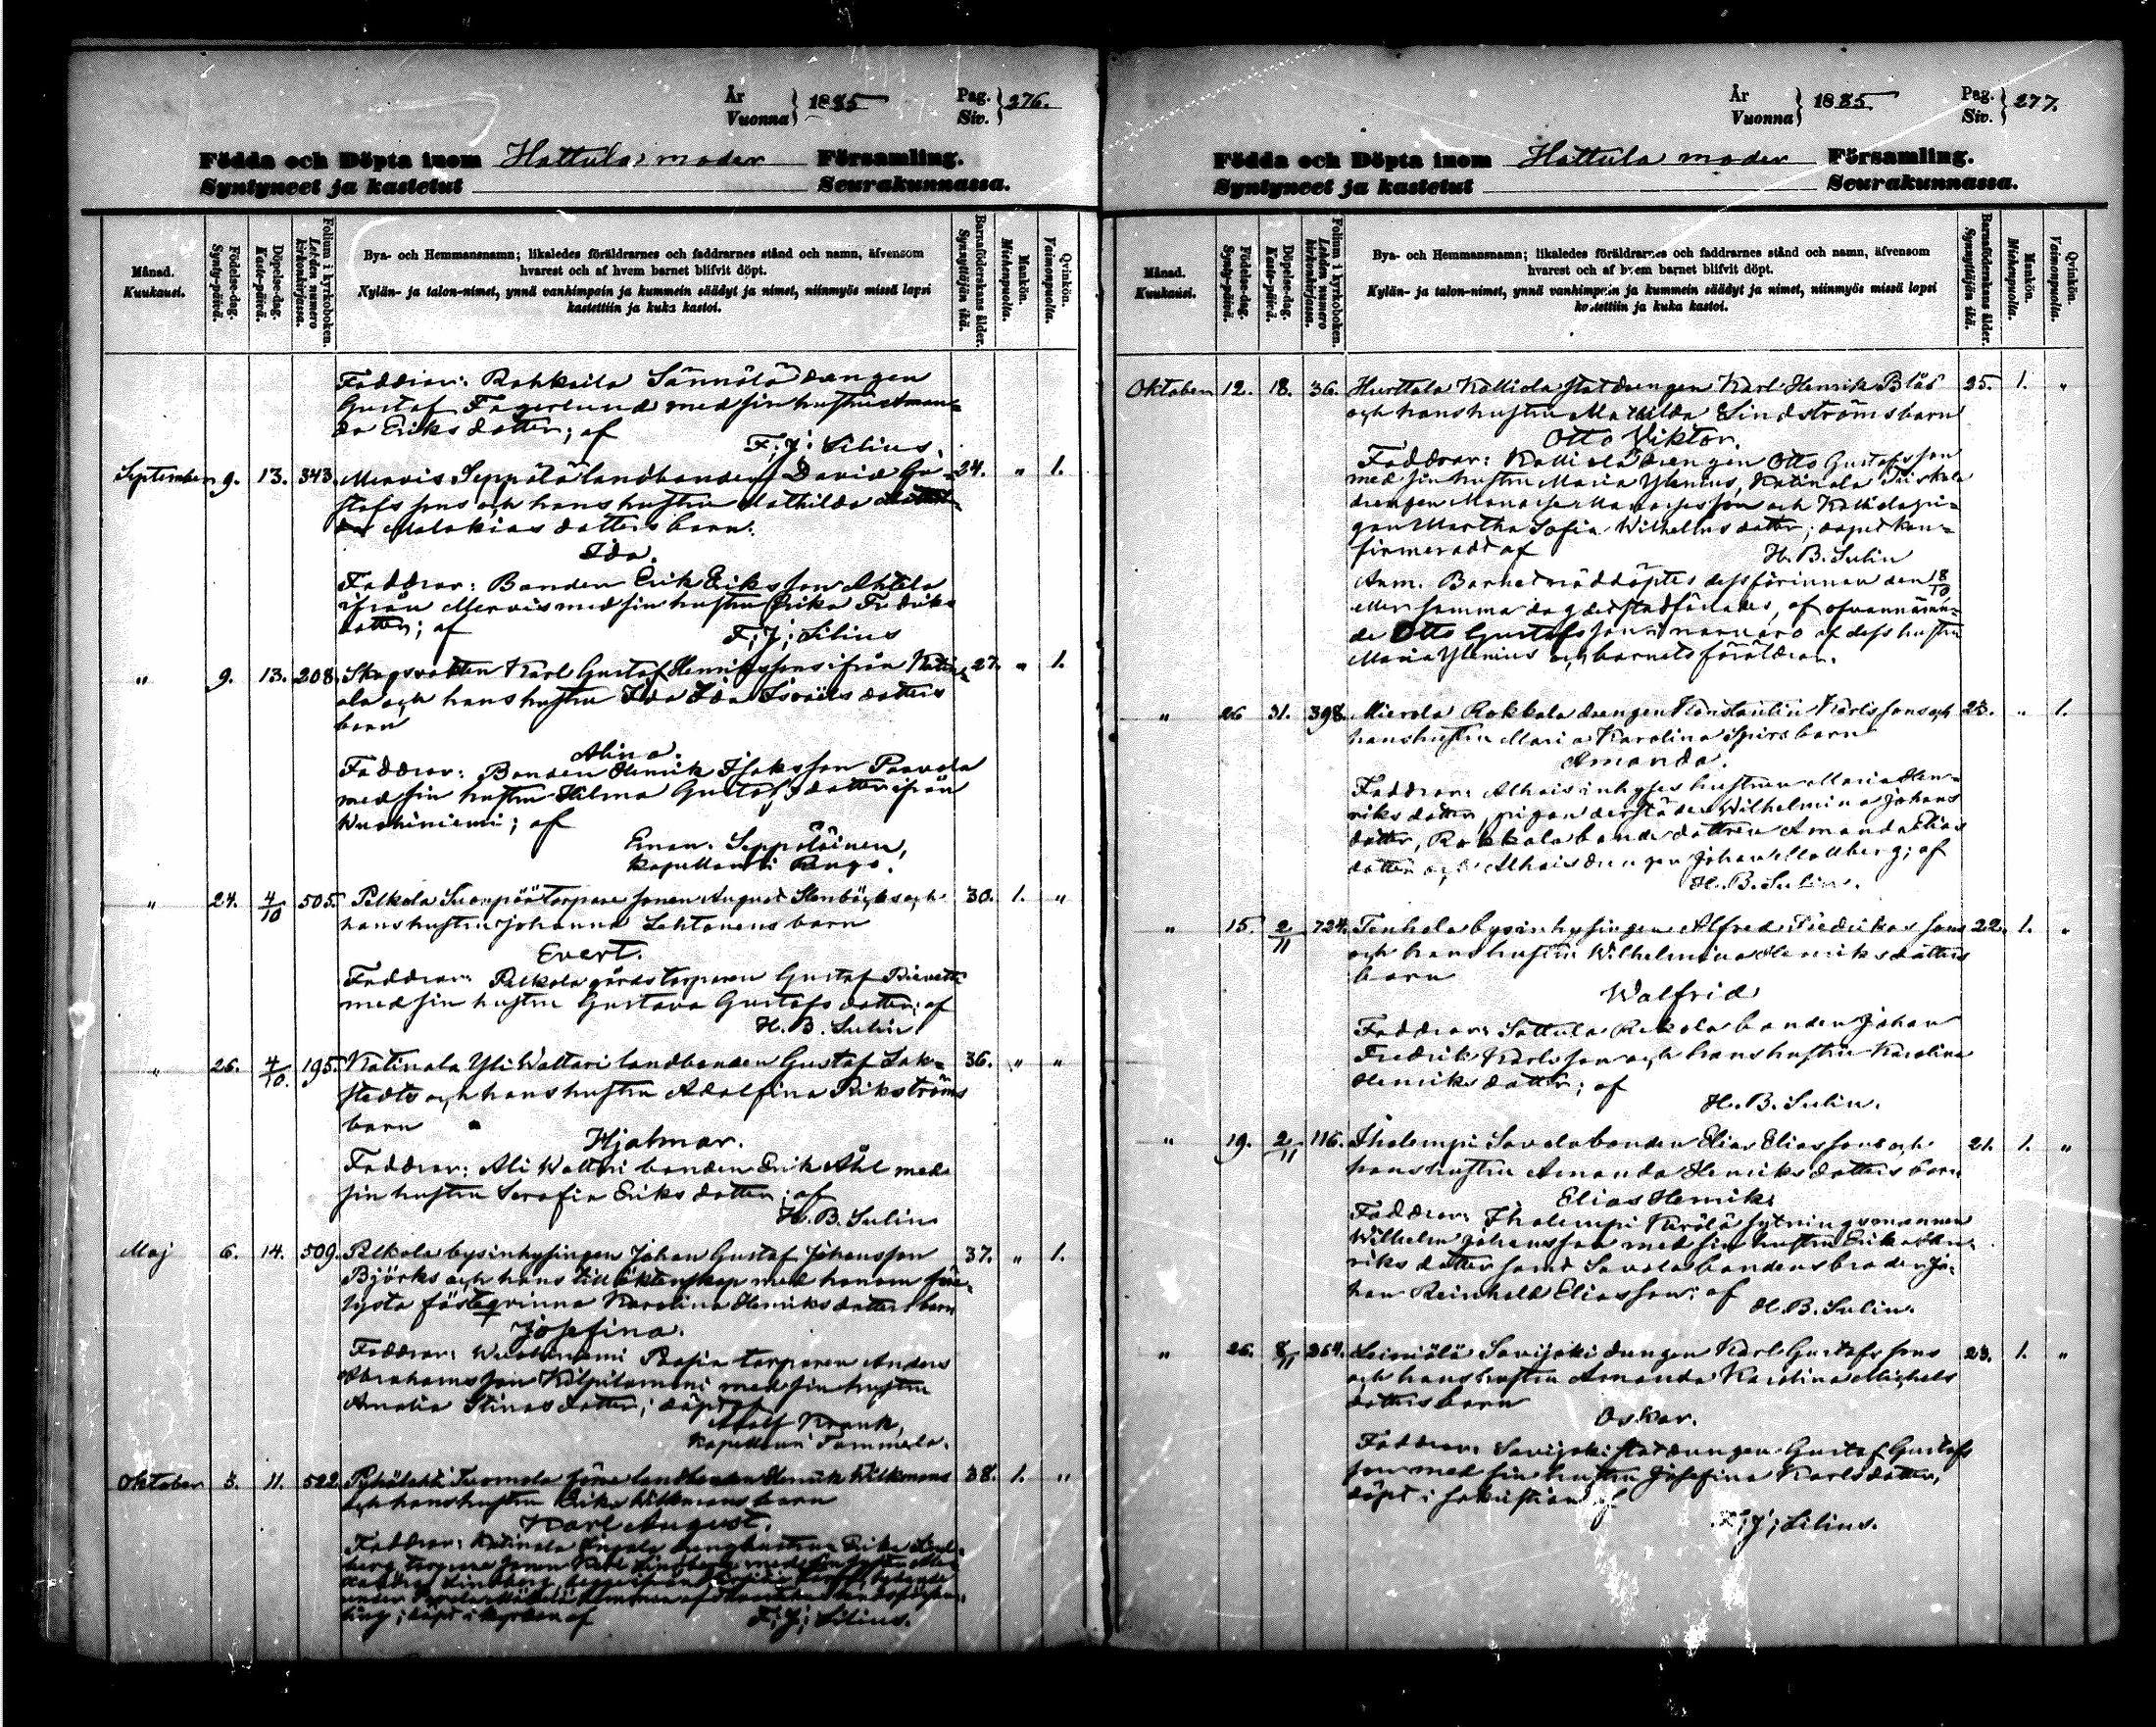 År
Vuonna } 1885
Pag.
Siv. } 276.
Födda och Döpta inom Hattula moder Församling.
Syntyneet ja kastetut Seurakunnassa.
Månad.
Kuukausi.
Födelse-dag.
Synty-päivä.
Döpelse-dag.
Kaste-päivä.
Folium i kyrkoboken.
Lehden numero
kirkonkirjassa.
Bya- och Hemmansnamn; likaledes föräldrarnes och faddrarnes stånd och namn, äfvensom
hvarest och af hvem barnet blifvit döpt.
Kylän- ja talon-nimet, ynnä vanhimpain ja kummein säädyt ja nimet, niinmyös missä lapsi
kastettiin ja kuka kastoi.
Barnaföderskans ålder.
Synnyttäjän ikä.
Mankön.
Miehenpuolta.
Qvinkön.
Vaimonpuolta.
Faddrar: Rahkoila Sännölä drengen
Gustaf Fagerlund med sin hustru Aman=
da Eriksdotter; af
F; J; Silius.
September 9. 13. 343. Mervis Seppälä landbonden David Gu= 24. " 1.
stafssons och hans hustru Mathilda
Malakiasdotters barn.
Ida.
Faddrar: Bonden Erik Eriksson Ahtela
ifrån Mervis med sin hustru Erika Fredriks
dotter; af F; J; Silius
" 9. 13. 208. Skogsvakten Karl Gustaf Henrikssons ifrån Katin 27. " 1.
ala och hans hustru Ida Ida Israëls dotters
barn
Alina.
Faddrar: Bonden Henrik Isaksson Paavola
med sin hustru Hilma Gustafsdotter ifrån
Wuohiniemi; af
Eman. Seppäläinen,
kapellan i Rengo.
" 24. 4/10 505. Pelkola Suonpää torparesonen August Stenbäcks och 30. 1. "
hans hustru Johanna Lehtonens barn
Evert.
Faddrar: Pelkola gårds torparen Gustaf
med sin hustru Gustava Gustafsdotter; af
H. B. Sulin
" 26. 4/10. 195. Katinala Yli Wattari landbonden Gustaf Sak= 36. " "
stedts och hans hustru Adolfina Rikströms
barn
Hjalmar.
Faddrar: Ali Wattari bonden Erik Åhl med
sin hustru Serafia Eriksdotter; af
H. B. Sulin
Maj 6. 14. 509. Pelkola bysinhysingen Johan Gustaf Johansson 37. " 1.
Björks och hans till äktenskap med honom
lysta fästeqvinna Karolina Henriksdotters barn
Josefina.
Faddrar: Wuohiniemi torparen Anders
Abrahamsson Kilpilammi med sin hustru
Amalia Stinasdotter; döpt af
Adolf Krank,
kapellan i Tammela.
Oktober 3. 11. 522. Pyhälehti Tuomola landbonden Henrik Wilkmans 38. 1. "
och hans hustru Erika Wilkmans barn
Karl August.
Faddrar: Katinala
döpt i kyrkan af F; J; Silius.
År
Vuonna } 1885.
Pag.
Siv. } 277.
Födda och Döpta inom Hattula moder Församling.
Syntyneet ja kastetut Seurakunnassa.
Månad.
Kuukausi.
Födelse-dag.
Synty-päivä.
Döpelse-dag.
Kaste-päivä.
Folium i kyrkoboken.
Lehden numero
kirkonkirjassa.
Bya- och Hemmansnamn; likaledes föräldrarnes och faddrarnes stånd och namn, äfvensom
hvarest och af hvem barnet blifvit döpt.
Kylän- ja talon-nimet, ynnä vanhimpain ja kummein säädyt ja nimet, niinmyös missä lapsi
kastettiin ja kuka kastoi.
Barnaföderskans ålder.
Synnyttäjän ikä.
Mankön.
Miehenpuolta.
Qvinkön.
Vaimonpuolta.
Oktober 12. 18. 36. Hurttala Kalliola statdrengen Karl Henrik Blås 25. 1. "
och hans hustru Mathilda Lindströms barn
Otto Viktor.
Faddrar: Kalliola drengen Otto Gustafsson
med sin hustru Maria Ylenius, Katinala
drengen Manasse Manassesson och Kalliola pi=
gan Martha Sofia Wilhelmsdotter; dopet kon=
firmeradt af H. B. Sulin
Anm. Barnet nöddöptes dessförinnan den 18/10
eller samma dag det stadfästades, af ofvannämn=
de Otto Gustafsson i närvaro af dess hustru
Maria Ylenius och barnets föräldrar.
" 26 31. 398. Mierola Rokkala drengen Konstantin Karlssons och 23. " 1.
hans hustru Maria Karolina Spirs barn
Amanda.
Faddrar: Alhais inhyses hustrun Maria Hen=
riksdotter, pigan derstädes Wilhelmina Johans
dotter, Rokkala bondedottren Amanda Elias
dotter och Alhais drengen Johan Mollberg; af
H. B. Sulin.
" 15. 2/11 724. Tenhola bysinhysingen Alfred Fredrikssons 22. 1. "
och hans hustru Wilhelmina Henriksdotters
barn
Walfrid
Faddrar: Sattula Rekola bonden Johan
Fredrik Karlsson och hans hustru Karolina
Henriksdotter; af
H. B. Sulin.
" 19. 2/11 116. Ihalempi Savola bonden Elias Eliassons och 21. 1. "
hans hustru Amanda Henriksdotters barn
Elias Henrik.
Faddrar: Ihalempi sytningsmannen
Wilhelm Johansson med sin hustru Erika Hen=
riksdotter samt Savola bondens broder Jo=
han Reinhold Eliasson: af
H. B. Sulin.
" 26. 8/11 264. Leiniälä Savijoki drengen Karl Gustafssons 23. 1. "
och hans hustru Amanda Karolina Michels
dotters barn
Oskar.
Faddrar: Savijoki statdrengen Gustaf Gustafs
son med sin hustru Josefina Karlsdotter,
döpt i sakristian af
F; J; Silius.